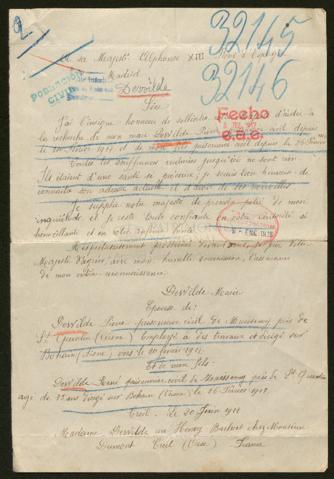 2
32145
32146
A sa Majesté Alphonse XIII Roi d'Espagne
Madrid
POBLACION
CIVIL
Derwilde
Sire
Fecho
J'ai l'insigne honneur de solliciter d'aider à
la recherche de mon mari Derwilde Paris civil depuis
le 20 février 1917 et de prisonnier civil depuis le 26 février
Toutes les souffrances endurées jusqu'ici ne sont rien
Ils étaient d'une santé si précaire, je serais bien heureuse de
connaître son adresse actuelle et d'avoir de ses nouvelles
Je supplie votre majesté de prendre pitié de mon
inquiétude et je reste toute confiante en votre générosité si
bienveillante et en votre
Respectueusement prosternée votre
Majesté d'agréer avec mon humble soumission, l'assurance
de mon entière reconnaissance.
Derwilde Marie
Epouse de:
Derwilde Paris prisonnier civil de près de
St Quentin (Aisne) Employé à des travaux et dirigé sur
Bohain (Aisne) vers le 20 février 1917
Et de mon fils:
Derwilde René prisonnier civil de près de St Quentin
agé de 15 ans dirigé sur Bohain (Aisne) le 26 Février 1917.
Creil. le 20 Juin 1917
Madame Derwilde rue Henry Barbier chez Monsieur
Dumont Creil (Oise) France